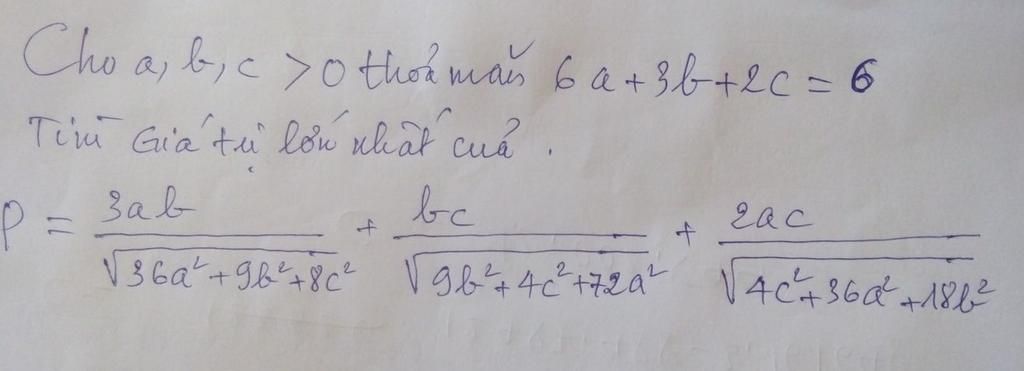 Cho a, b, c > 0 thoả mãn 6a + 3b + 2c = 6
Tìm Giá trị lớn nhất của.
P = 3ab / √(36a² + 9b² + 8c²) + bc / √(9b² + 4c² + 72a²) + 2ac / √(4c² + 36a² + 18b²)